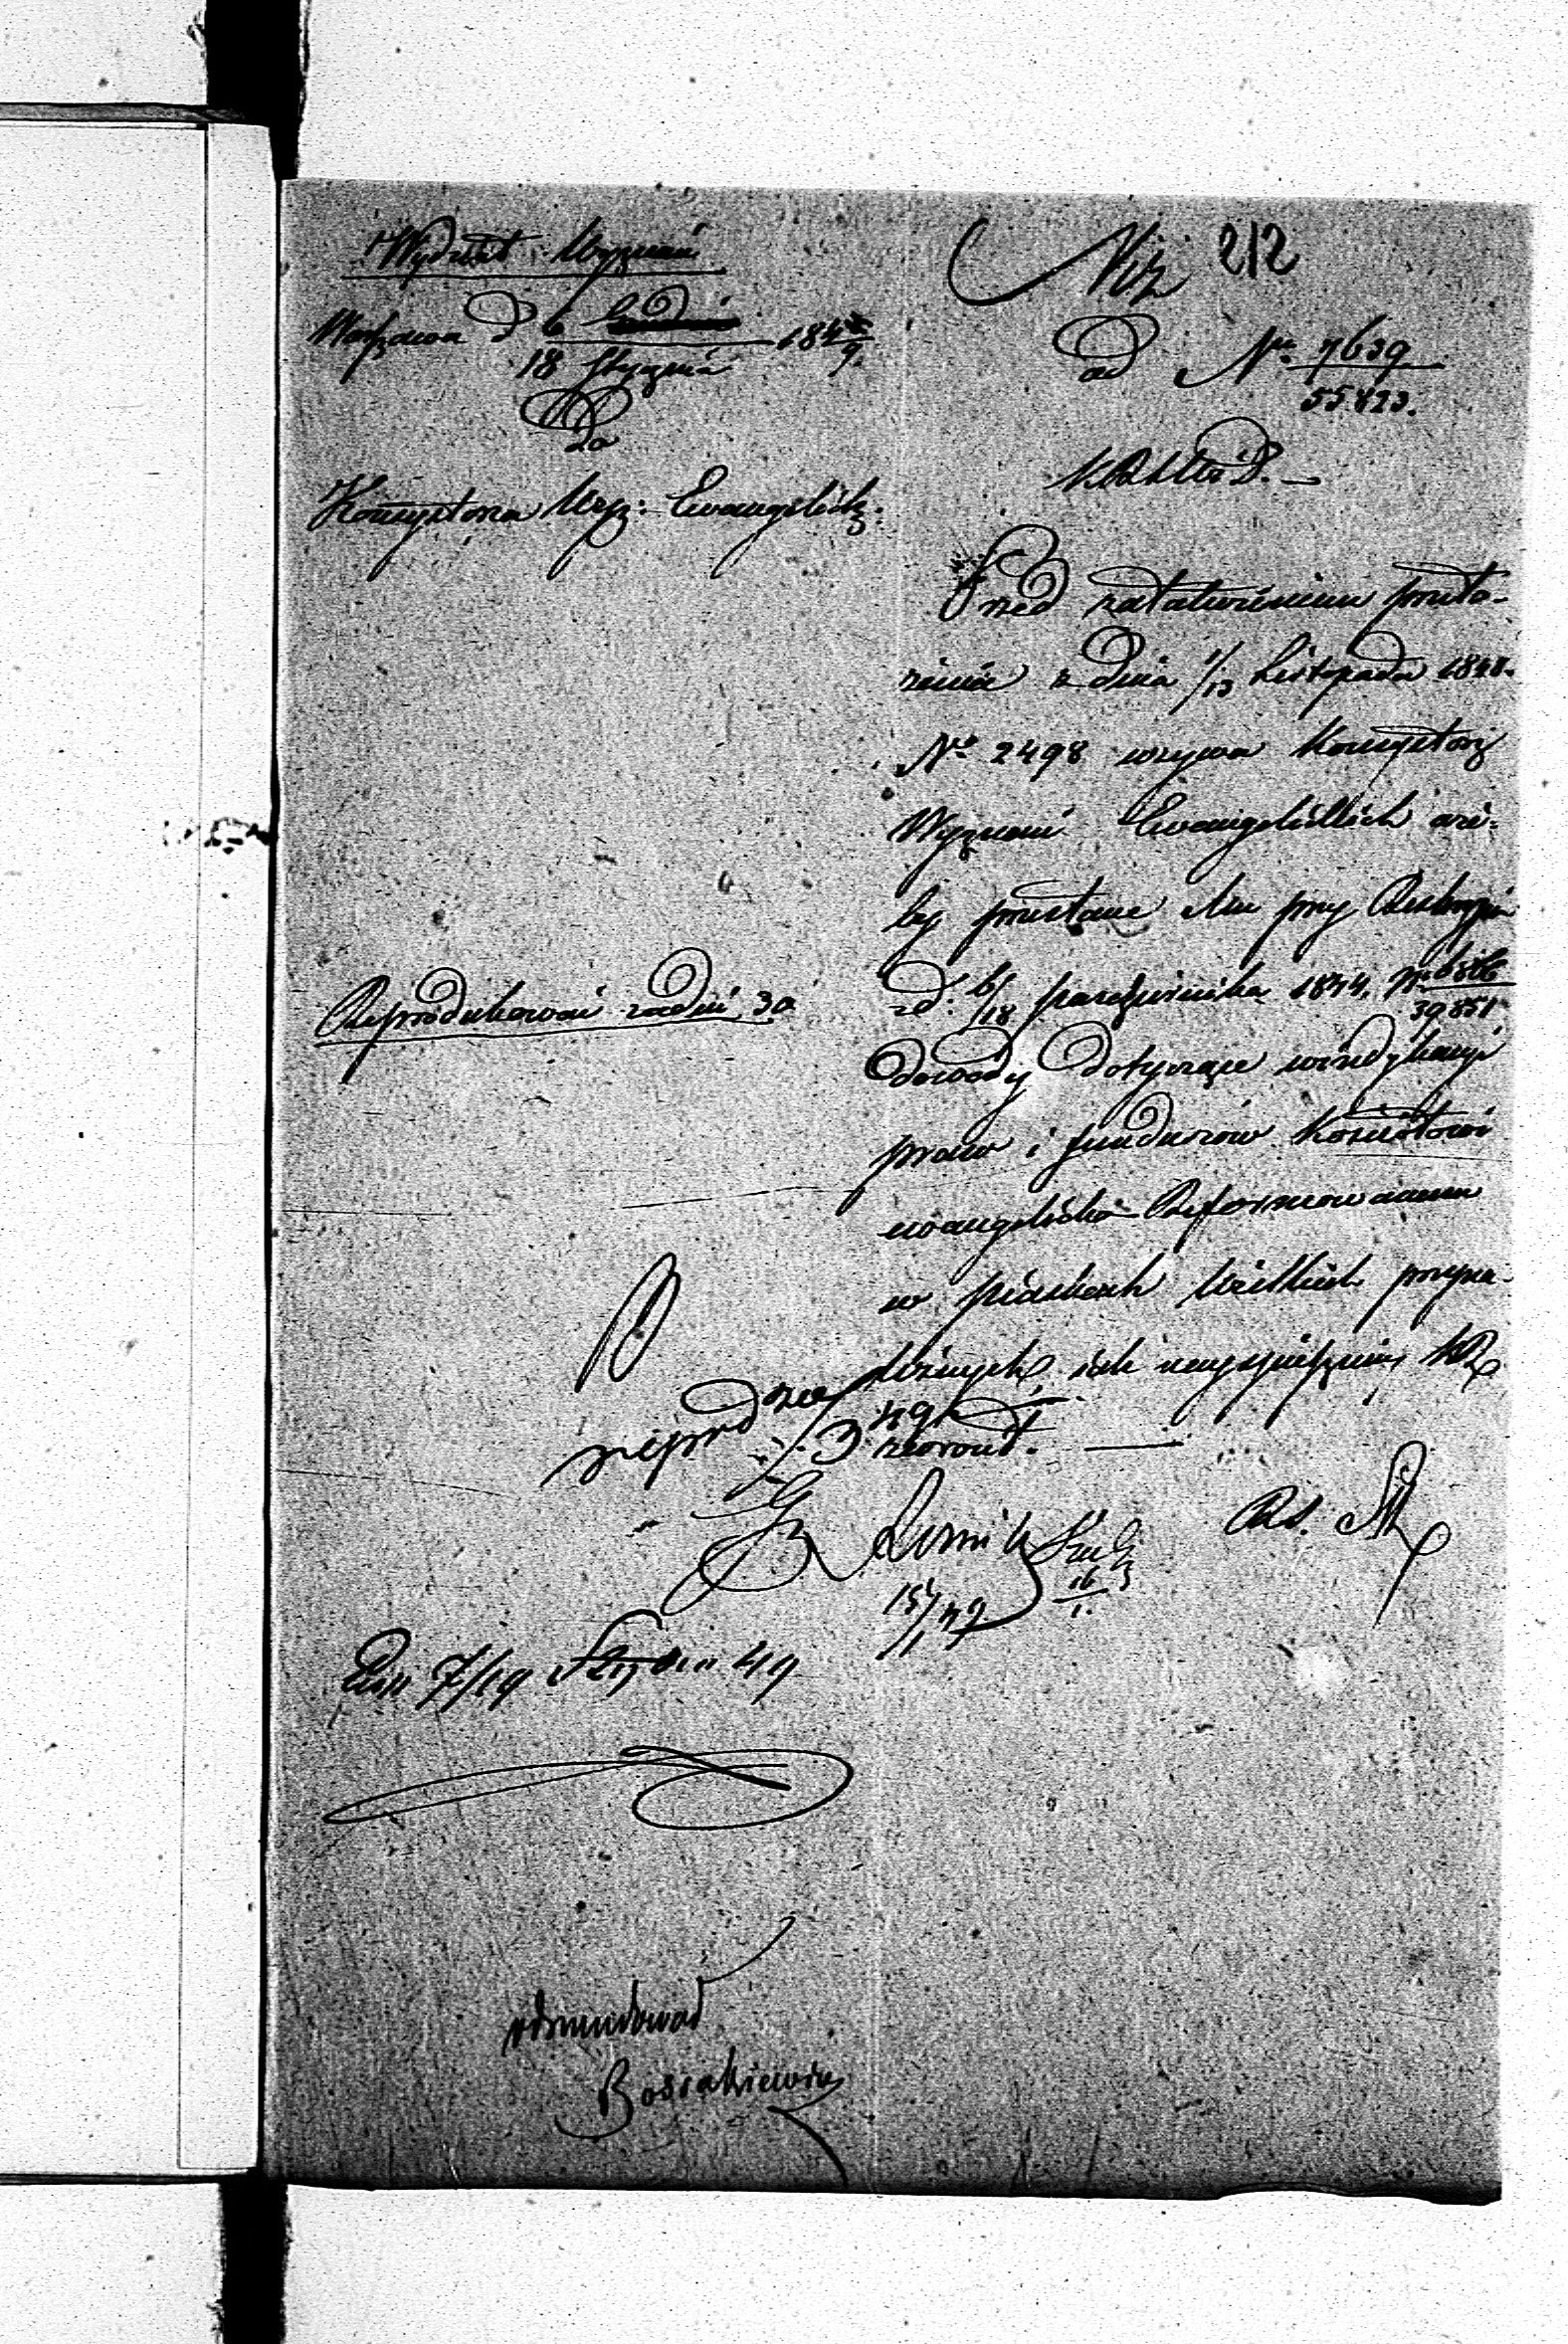 Wydział Wyznań
Warszawa d 6 184
18 Stycznia 9.
Do
Konsystorza Wyz: Ewangelick:
212
ad Nr 7639
55823.
Przed załatwieniem przeło-
żenia z dnia 1/13 Listopada 1848.
No 2498 wzywa Konsystorz
Wyznań Ewangelickich aże-
by przesłane Mu przy Reskrypcie
z d. 6/18 Października 1844. Nr
39851
dowody dotyczące windykacyi
praw i funduszów Kościołowi
ewangelicko-Reformowanemu
w Piaskach Wielkich przyna-
leżnych, jak najspieszniej KR
zwrócił.
Reprodukować za dni 30
15/1 49
16
1.
Exp 7/19 Stycznia 49
Bossakiewicz